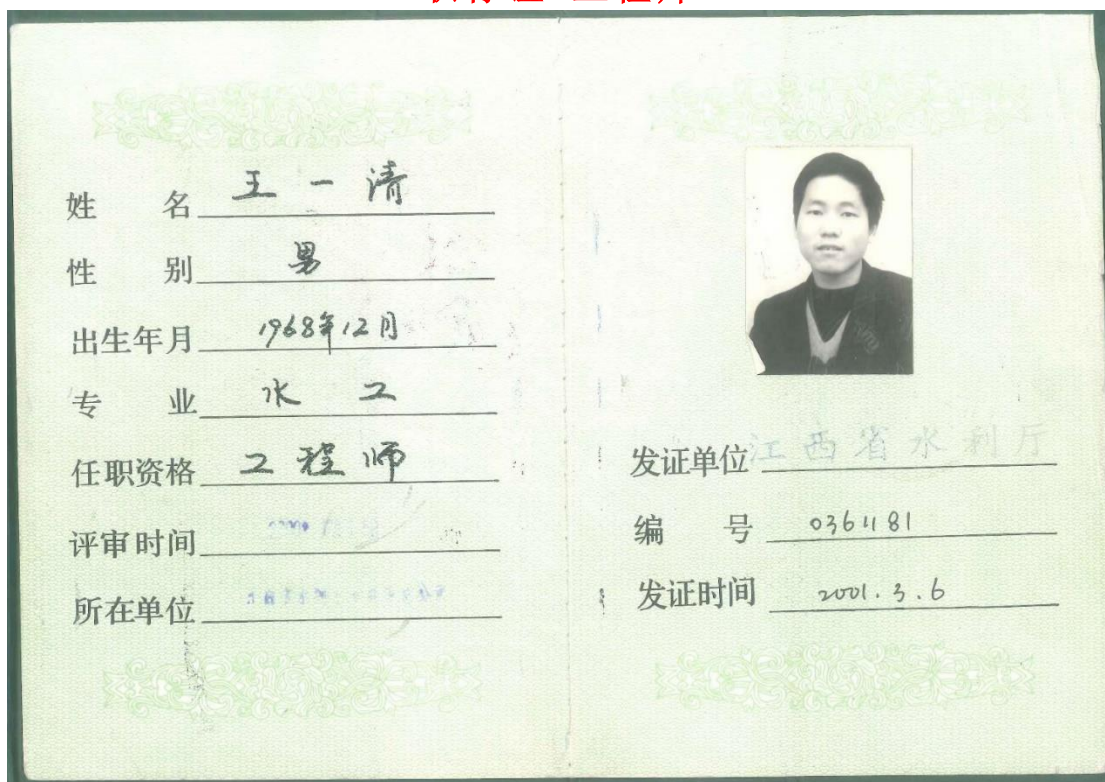 姓 名 王一清
性 别 男
出生年月 1968年12月
专 业 水工
任职资格 工程师
评审时间
所在单位
发证单位 江西省水利厅
编 号 0361181
发证时间 2001.3.6